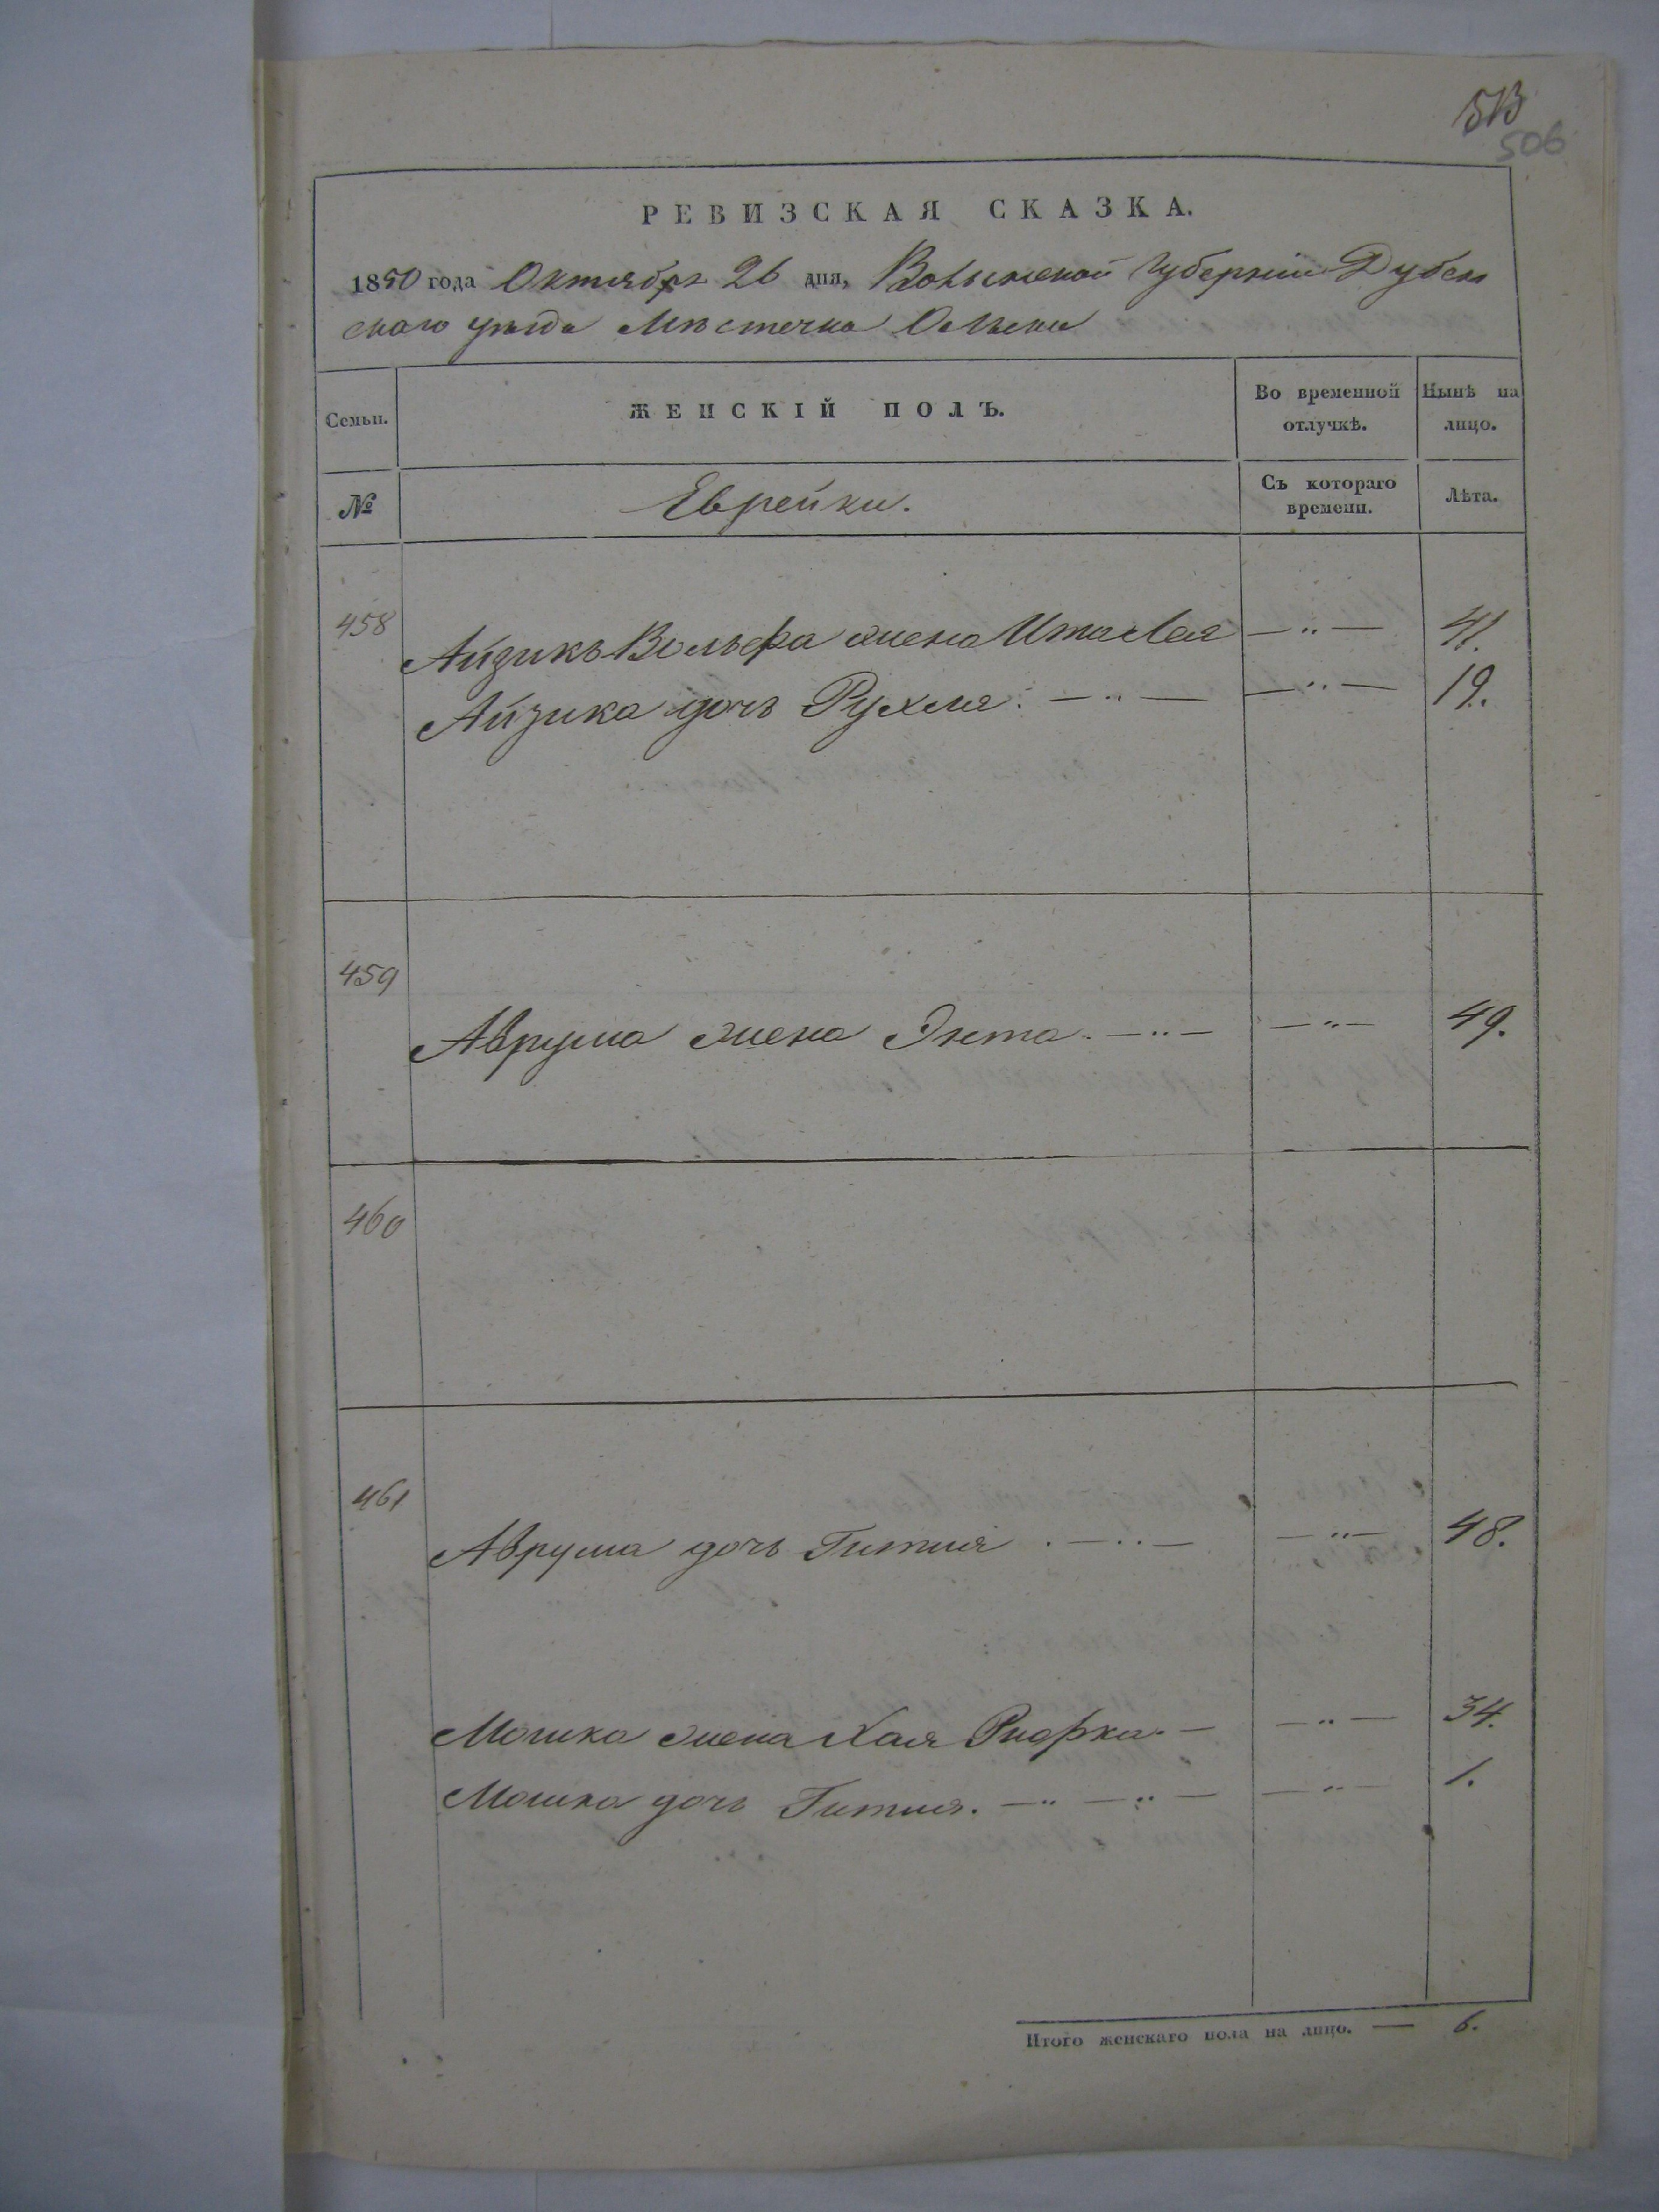 513
506
РЕВИЗСКАЯ СКАЗКА.
1850 года Октября 26 дня, Волынской Губерніи Дубен
скаго уѣзда Мѣстечка Олыки
Семьи.
ЖЕНСКІЙ ПОЛЪ.
Во временной отлучкѣ.
Нынѣ на лицо.
№
Еврейки.
Съ котораго времени.
Лѣта.
458
Айзикъ Вольфа жена Ита Лея — „ — 41.
Айзика дочь Рухля. — „ — — „ — 19.
459
Аврума жена Энта. — „ — — „ — 49.
460
461
Аврума дочь Гитля . — „ — — „ — 48.
Мошка жена Хая Рифка. — — „ — 34.
Мошка дочь Гитля. — „ — „ — — „ — 1.
Итого женскаго пола на лицо. — 6.